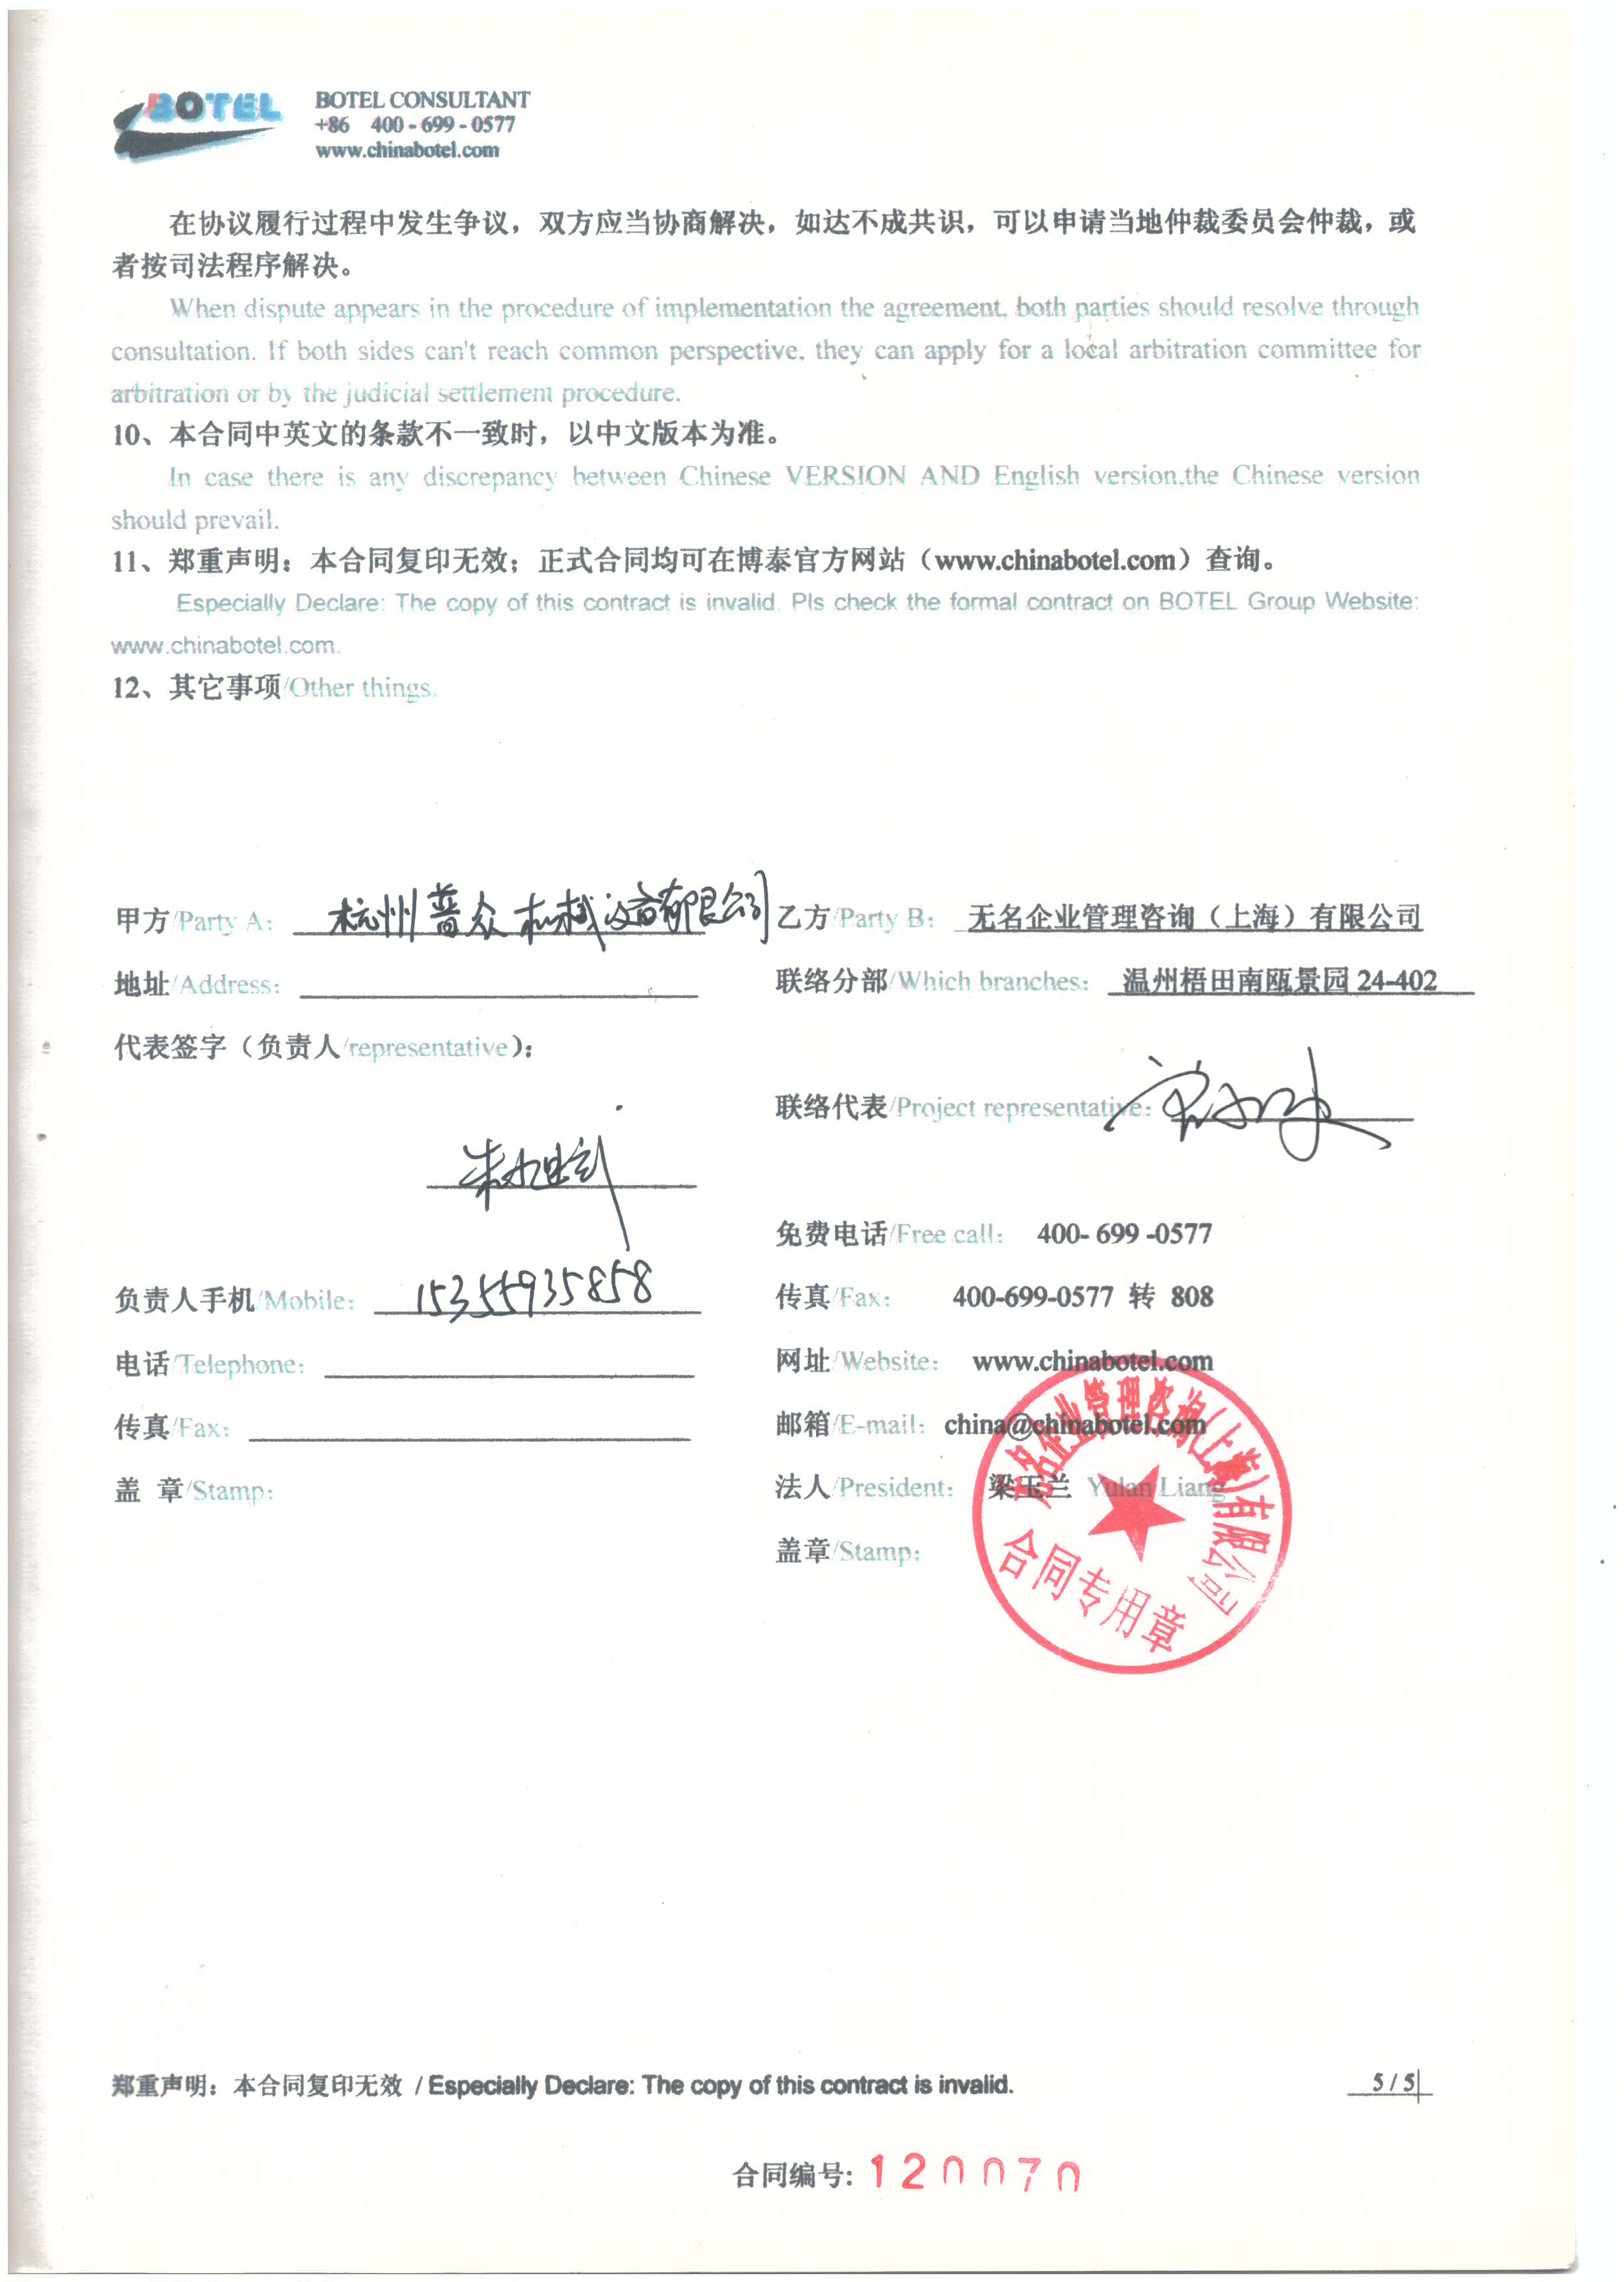 BOTEL
BOTEL CONSULTANT
+86 400-699-0577
www.chinabotel.com
在协议履行过程中发生争议，双方应当协商解决，如达不成共识，可以申请当地仲裁委员会仲裁，或
者按司法程序解决。
When dispute appears in the procedure of implementation the agreement, both parties should resolve through
consultation. If both sides can't reach common perspective, they can apply for a local arbitration committee for
arbitration or by the judicial settlement procedure.
10、本合同中英文的条款不一致时，以中文版本为准。
In case there is any discrepancy between Chinese VERSION AND English version,the Chinese version
should prevail.
11、郑重声明：本合同复印无效；正式合同均可在博泰官方网站（www.chinabotel.com）查询。
Especially Declare: The copy of this contract is invalid. Pls check the formal contract on BOTEL Group Website:
www.chinabotel.com.
12、其它事项/Other things.
甲方/Party A： 杭州普众机械设备有限公司 乙方/Party B： 无名企业管理咨询（上海）有限公司
地址/Address： 联络分部/Which branches： 温州梧田南瓯景园 24-402
代表签字（负责人/representative）：
联络代表/Project representative：
免费电话/Free call： 400- 699 -0577
负责人手机/Mobile： 15355935858 传真/Fax： 400-699-0577 转 808
电话/Telephone： 网址/Website： www.chinabotel.com
传真/Fax： 邮箱/E-mail： china@chinabotel.com
盖 章/Stamp： 法人/President： 梁玉兰 Yulan Liang
盖章/Stamp：
无名企业管理咨询(上海)有限公司
合同专用章
郑重声明：本合同复印无效 / Especially Declare: The copy of this contract is invalid. 5 / 5
合同编号: 120070